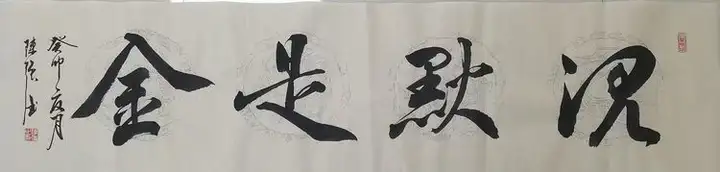 沉默是金
癸卯夏月
陳